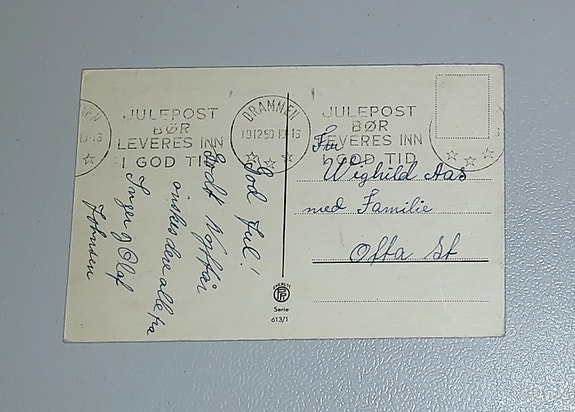 JULEPOST
BØR
LEVERES INN
I GOD TID
DRAMMEN
19 12 59 19-16
JULEPOST
BØR
LEVERES INN
I GOD TID
God Jul!
Godt Nyttår
ønskes dere alle fra
Inger og Olaf
Johnsen
Fru
Wighild Aas
med Familie
Otta St
Serie
613/1